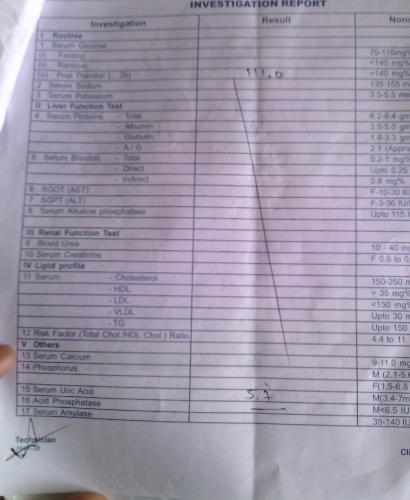 INVESTIGATION REPORT
Investigation Result Norm
I Routine
1 Serum Glucose
(i) Fasting 70-110mg%
(ii) Random <140 mg%
(iii) Post Prandial ( 2h) 111.0 <140 mg%
2 Serum Sodium 135-155 m
3 Serum Potassium 3.5-5.5 me
II Liver Function Test
4 Serum Proteins - Total 6.2-8.4 gm
- Albumin 3.5-5.0 gm
- Globulin 1.8-3.3 gm
- A / G 2.1 (Appro
5 Serum Bilirubin - Total 0.2-1 mg%
- Direct Upto 0.25
- Indirect 0.6 mg%
6 SGOT (AST) F-10-30 IU
7 SGPT (ALT) F-3-36 IU/
8 Serum Alkaline phosphatase Upto 115 I
III Renal Function Test
9 Blood Urea 10 - 40 m
10 Serum Creatinine F 0.6 to 0.
IV Lipid profile
11 Serum - Cholesterol 150-250 m
- HDL > 35 mg%
- LDL <150 mg%
- VLDL Upto 30 m
- TG Upto 150
12 Risk Factor (Total Chol /HDL Chol ) Ratio 4.4 to 11
V Others
13 Serum Calcium 9-11.0 mg
14 Phosphorus M (2.1-5.6
F(1.5-6.8
15 Serum Uric Acid 5.7 M(3.4-7m
16 Acid Phosphatase M<6.5 IU
17 Serum Amylase 35-140 IU
Technician